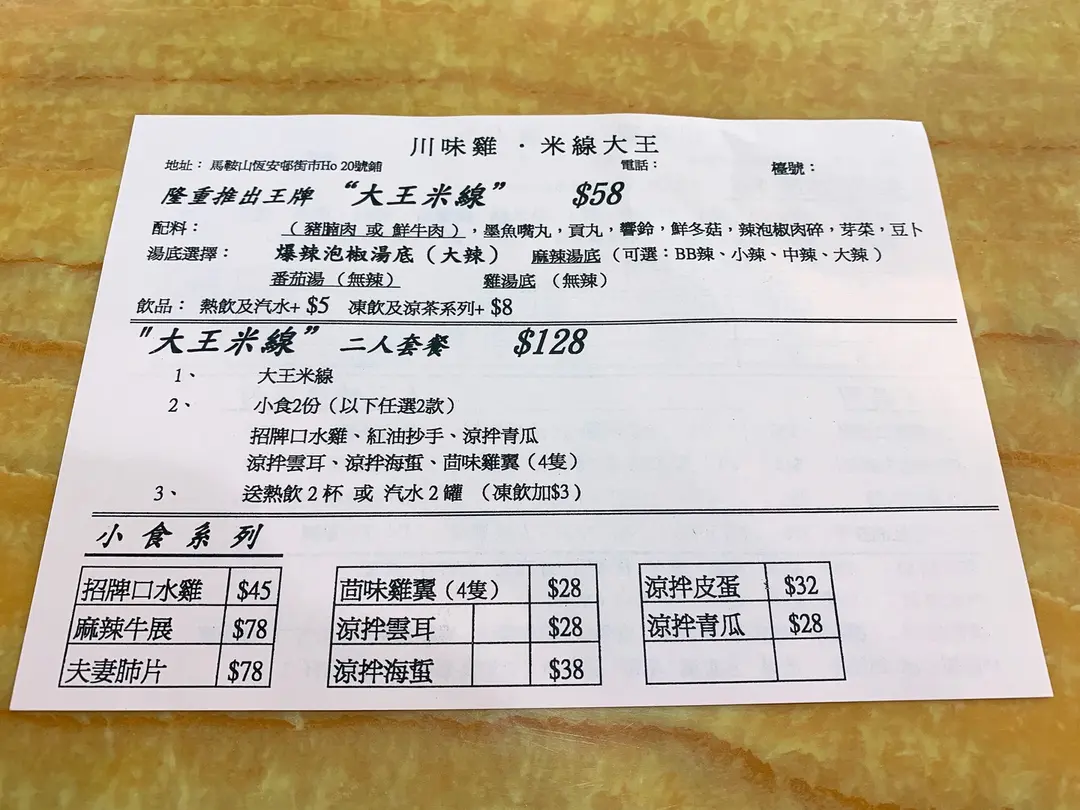 川味雞 · 米線大王
地址： 馬鞍山恆安邨街市Ho 20號舖 電話： 檯號：
隆重推出王牌 “大王米線” $58
配料： （豬腩肉 或 鮮牛肉），墨魚嘴丸，貢丸，響鈴，鮮冬菇，辣泡椒肉碎，芽菜，豆卜
湯底選擇： 爆辣泡椒湯底（大辣） 麻辣湯底（可選：BB辣、小辣、中辣、大辣）
番茄湯（無辣） 雞湯底 （無辣）
飲品： 熱飲及汽水+ $5 凍飲及涼茶系列+ $8
"大王米線” 二人套餐 $128
1、 大王米線
2、 小食2份（以下任選2款）
招牌口水雞、紅油抄手、涼拌青瓜
涼拌雲耳、涼拌海蜇、茴味雞翼（4隻）
3、 送熱飲 2 杯 或 汽水 2 罐 （凍飲加$3）
小食系列
招牌口水雞 $45 茴味雞翼（4隻） $28 涼拌皮蛋 $32
麻辣牛展 $78 涼拌雲耳 $28 涼拌青瓜 $28
夫妻肺片 $78 涼拌海蜇 $38